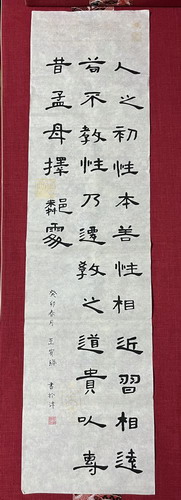 人之初性本善性相近習相遠
苟不教性乃遷教之道貴以專
昔孟母擇鄰處
癸卯春月